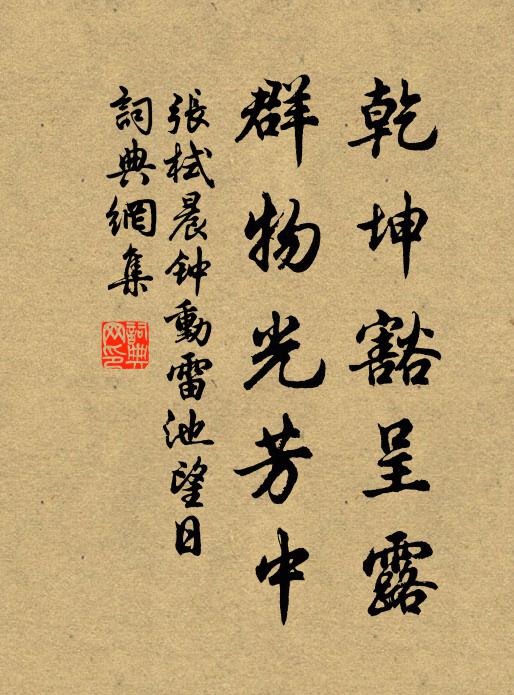 乾坤豁呈露
群物光芳中
張栻晨钟動雷池望日
詞典網集
詞典網印